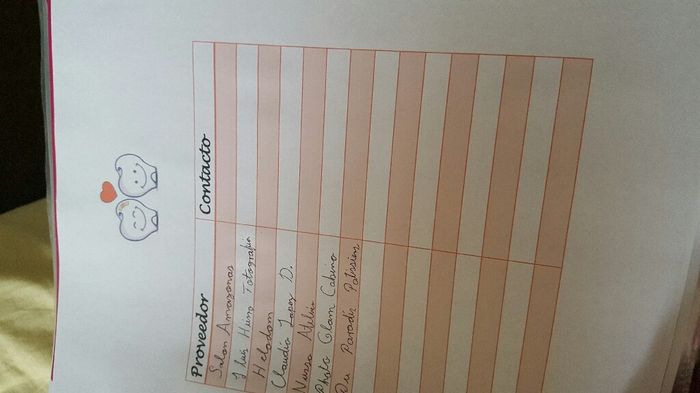 Proveedor Contacto
Salon Amazonas
J Luis Huno Fotografia
Heladom
Claudia Lopez D.
Nurso Atelier
Photo Glam Cabina
Du Paradis Patissier